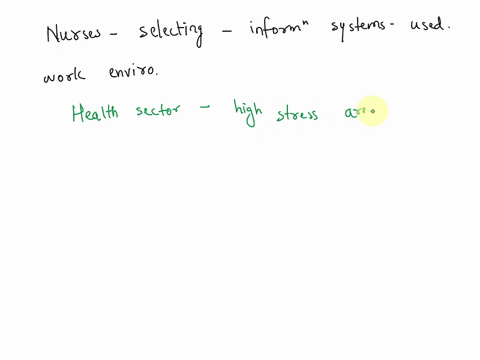 Nurses - selecting - informⁿ systems - used.
work enviro.
Health sector - high stress are